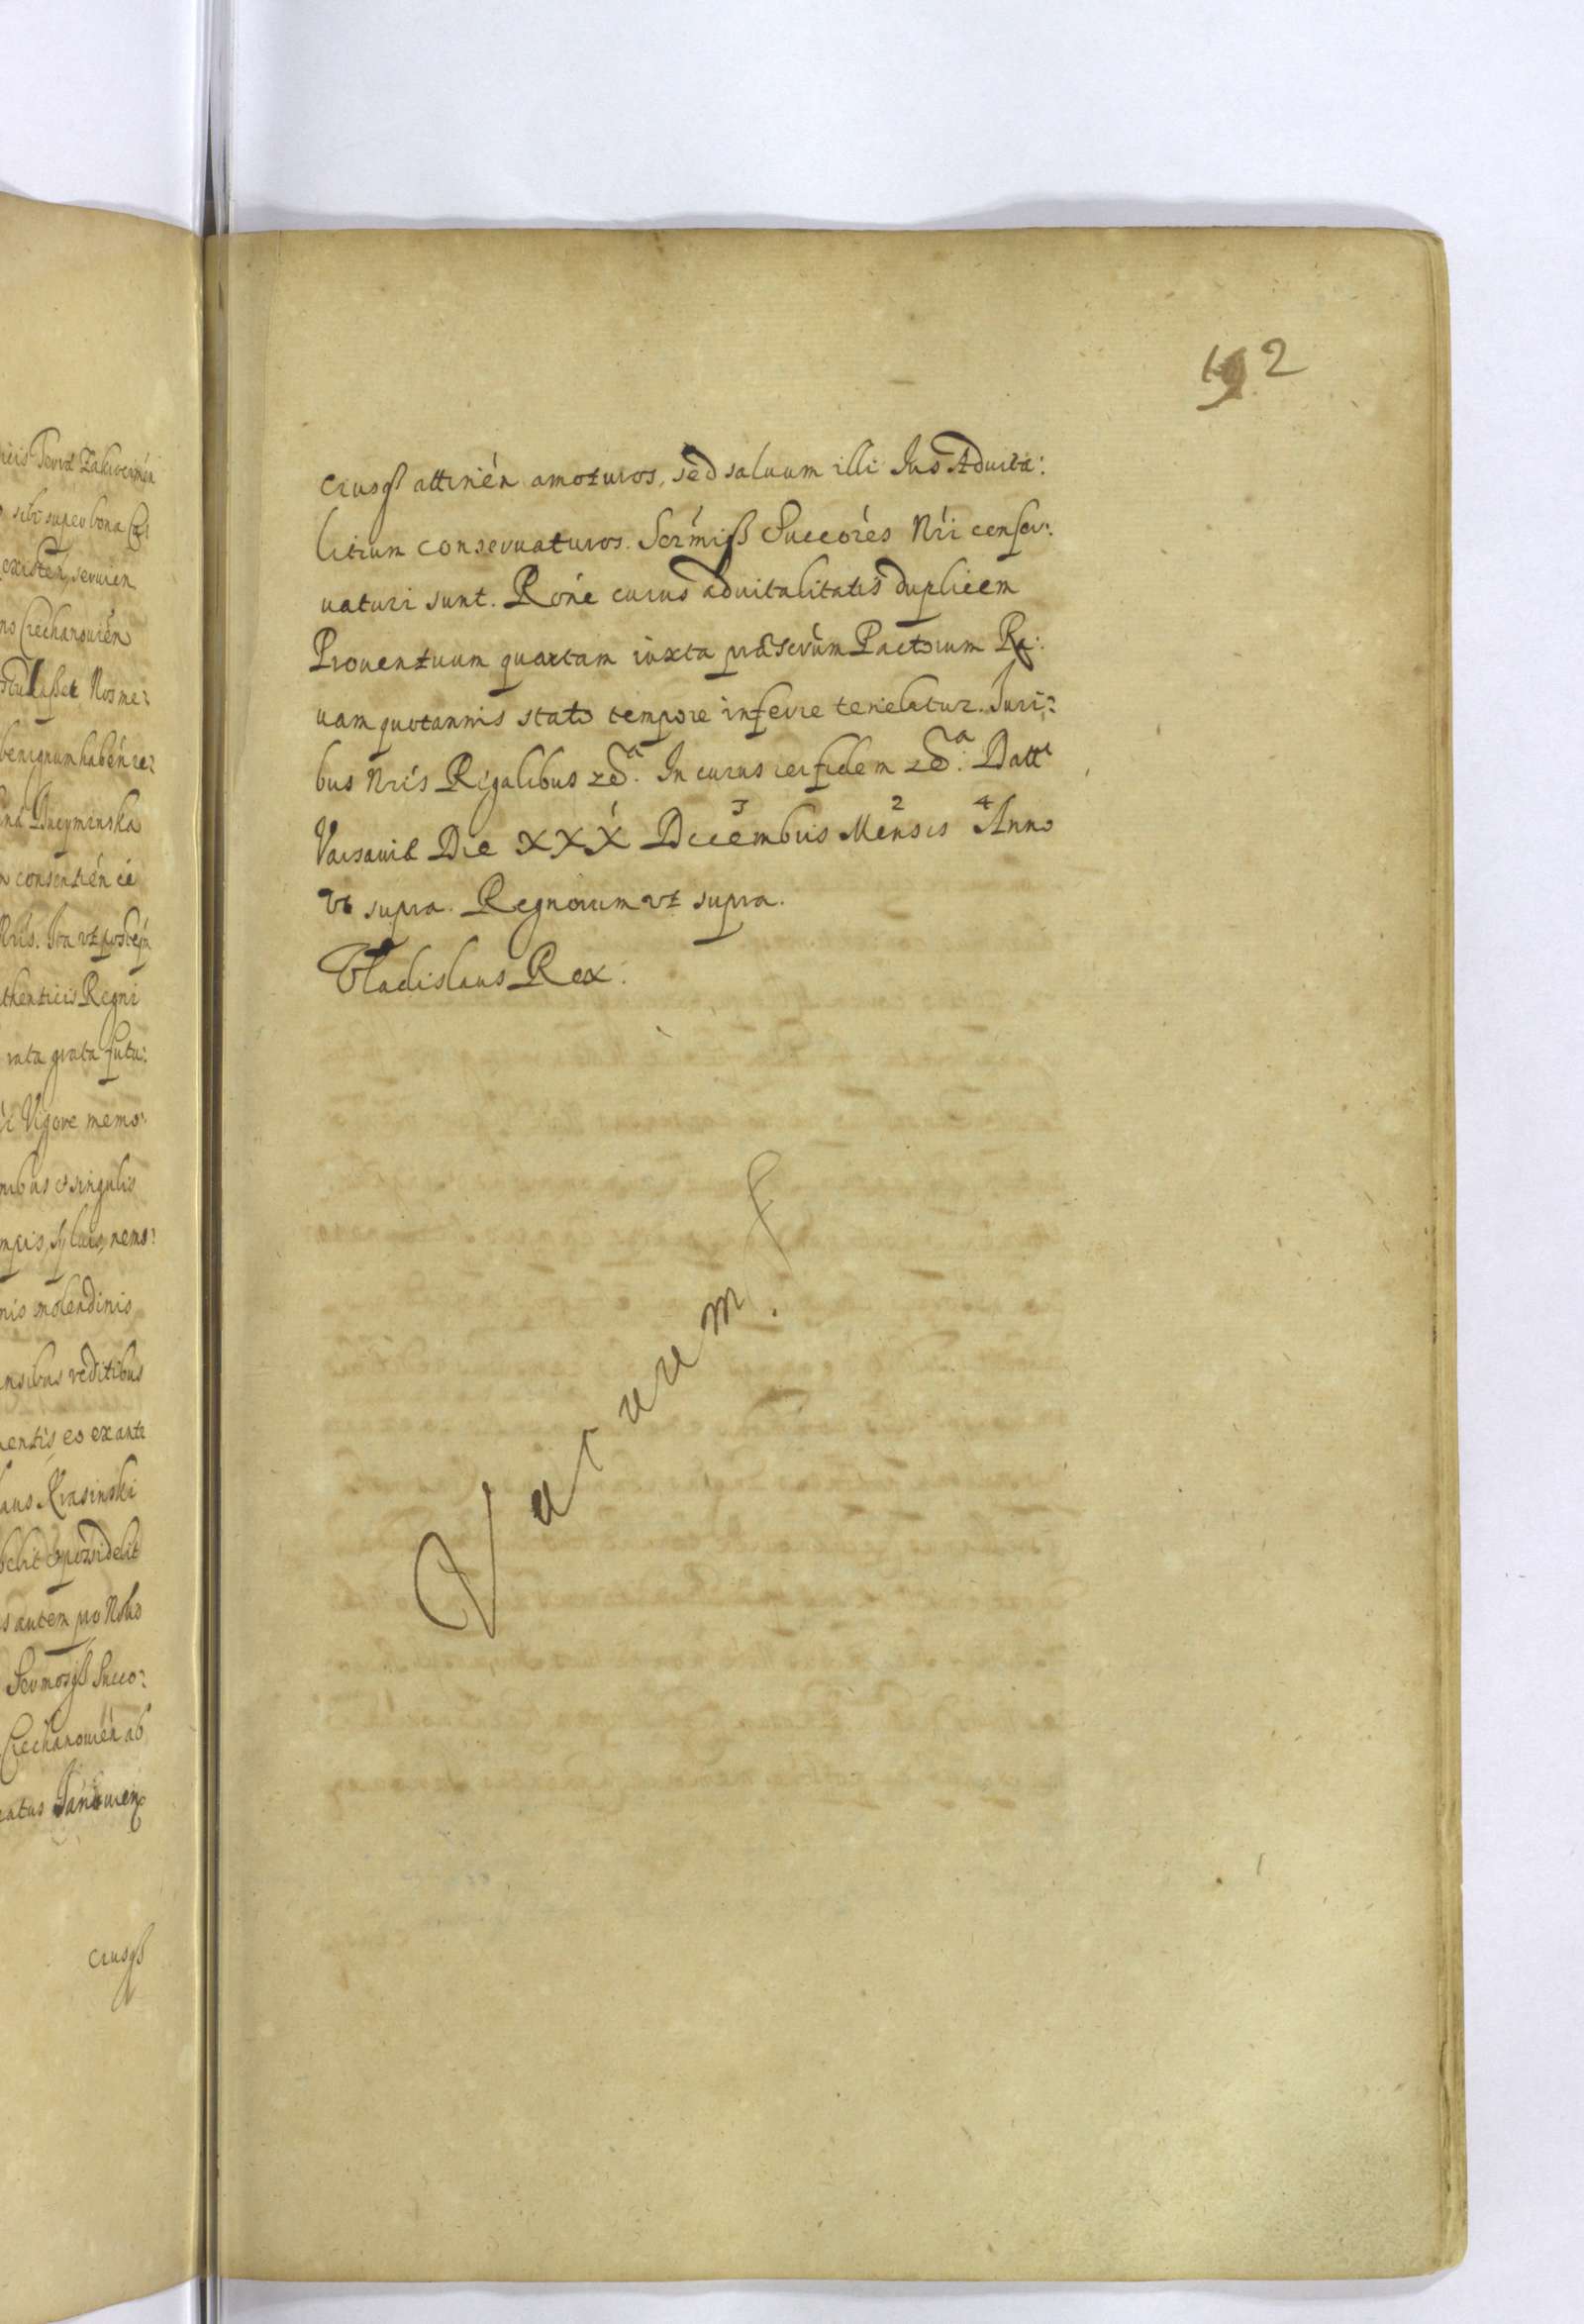 192
eiusq attinén amoturos, sed saluum illi Ius Aduita:
litium conseruaturos. Sermiss Succóres Nri conser:
uaturi sunt. Róne cuius aduitalitatis duplicem
Prouentuum quartam iuxta præscrum Pactorum Ra:
uam quotannis stato tempore inferre tenebitur. Iuri:
bus Nris Regalibus
In cuius rei fidem
Datt
Varsauiæ Die XXX Decembris Mensis Anno
1 3 2 4
vt supra. Regnorum vt supra.
Vladislaus Rex.
Vacuum.
icis Terræ Zakrocimén
sibi super bona
existen, seruien
Ciechanouién
Nos me:
benignum habén re:
consentién
Nris. Ita vt
thenticis Regni
rata grata futu:
Vigore memo:
nibus et singulis
syluis, nemo:
nis molendinis
nsibus reditibus
entis, eo ex ante
laus Krasinski
possidebit
s autem pro Nobis
Sermosq Succo:
Ciechanouién ab
ratus
eiusq